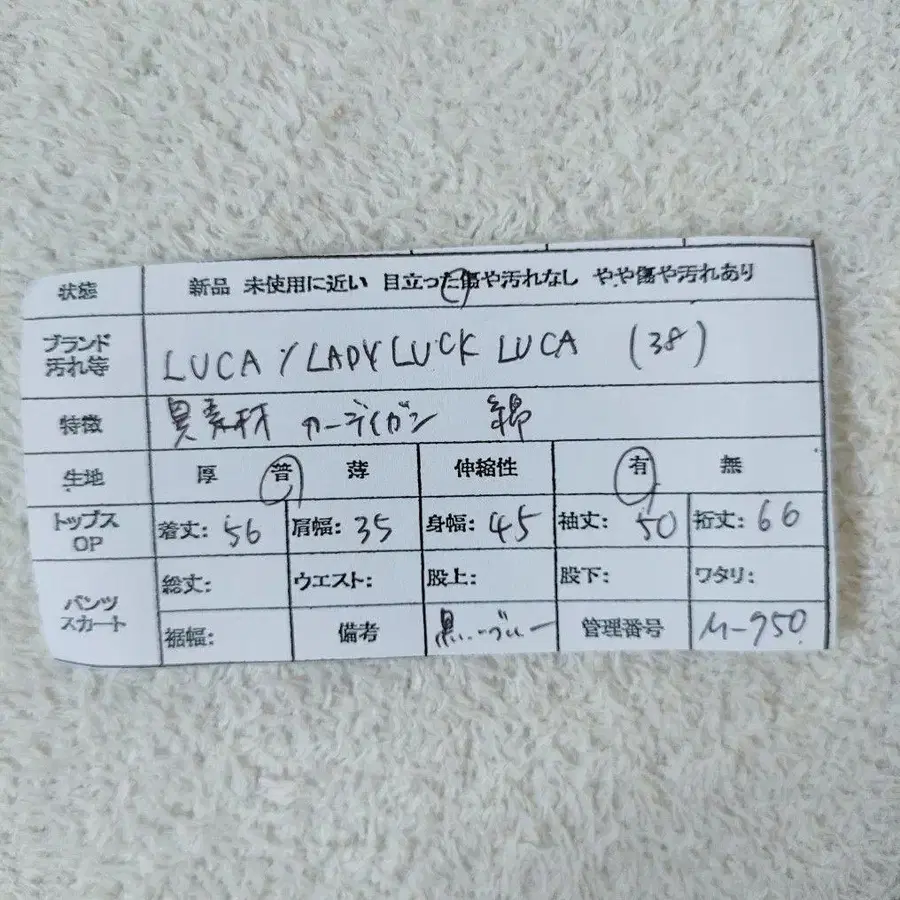 状態 新品 未使用に近い 目立った傷や汚れなし やや傷や汚れあり
ブランド
汚れ等 LUCA / LADY LUCK LUCA (38)
特徴 異素材 カーディガン 綿
生地 厚 普 薄 伸縮性 有 無
トップス
OP 着丈: 56 肩幅: 35 身幅: 45 袖丈: 50 裄丈: 66
パンツ
スカート 総丈: ウエスト: 股上: 股下: ワタリ:
裾幅: 備考 黒 管理番号 M-950